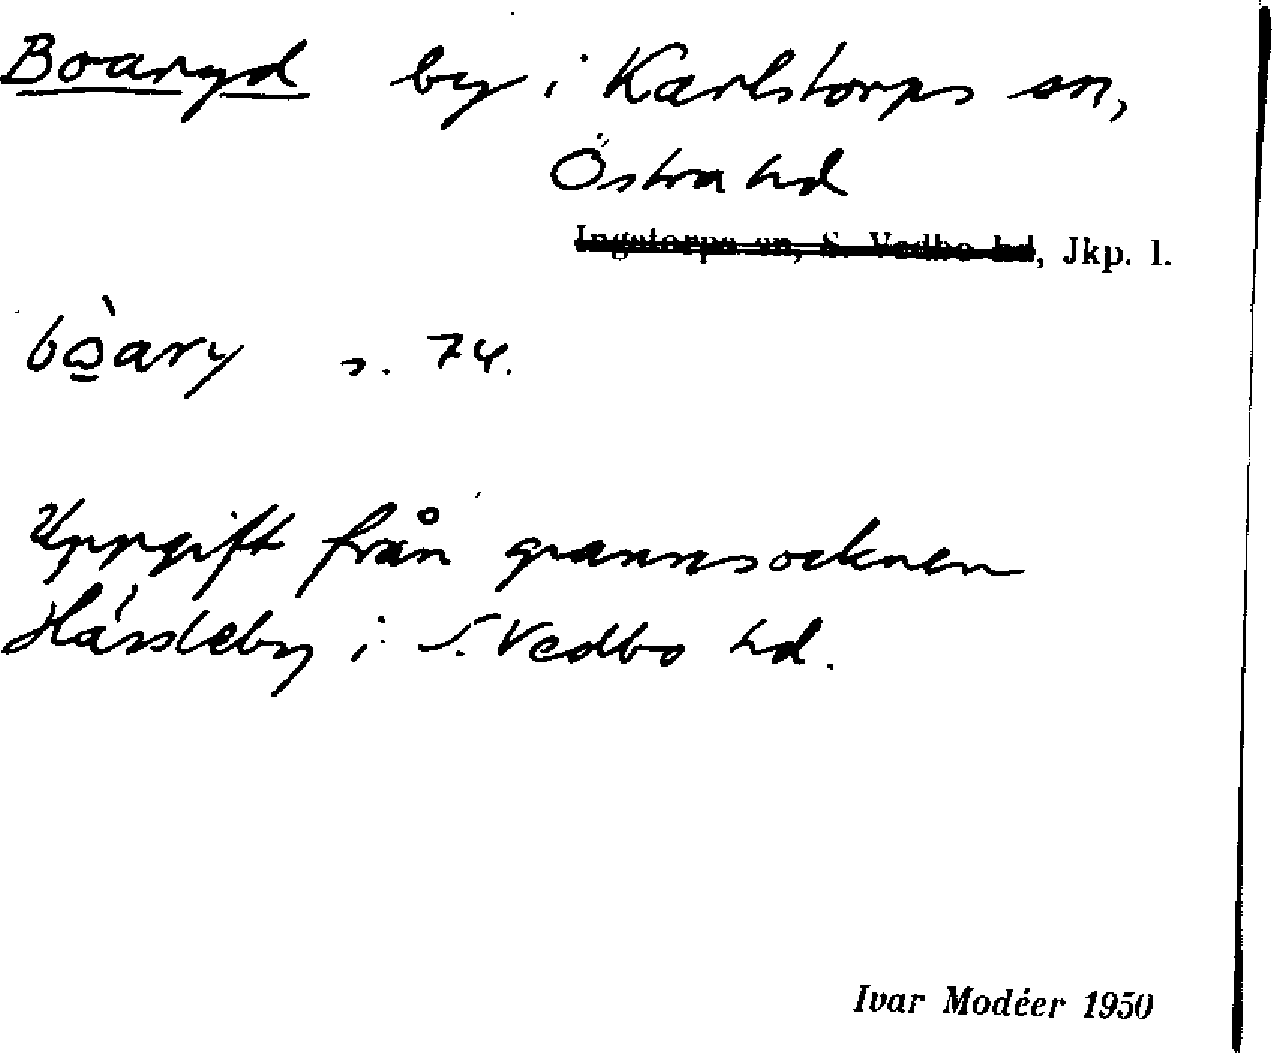 Boaryd by i Karlstorps sn,
Östra hd
Ingatorps sn, S. Vedbo hd, Jkp. l.
bò̲ary s. 74.
Uppgift från grannsocknen
Hässleby i S. Vedbo hd.
Ivar Modéer 1950